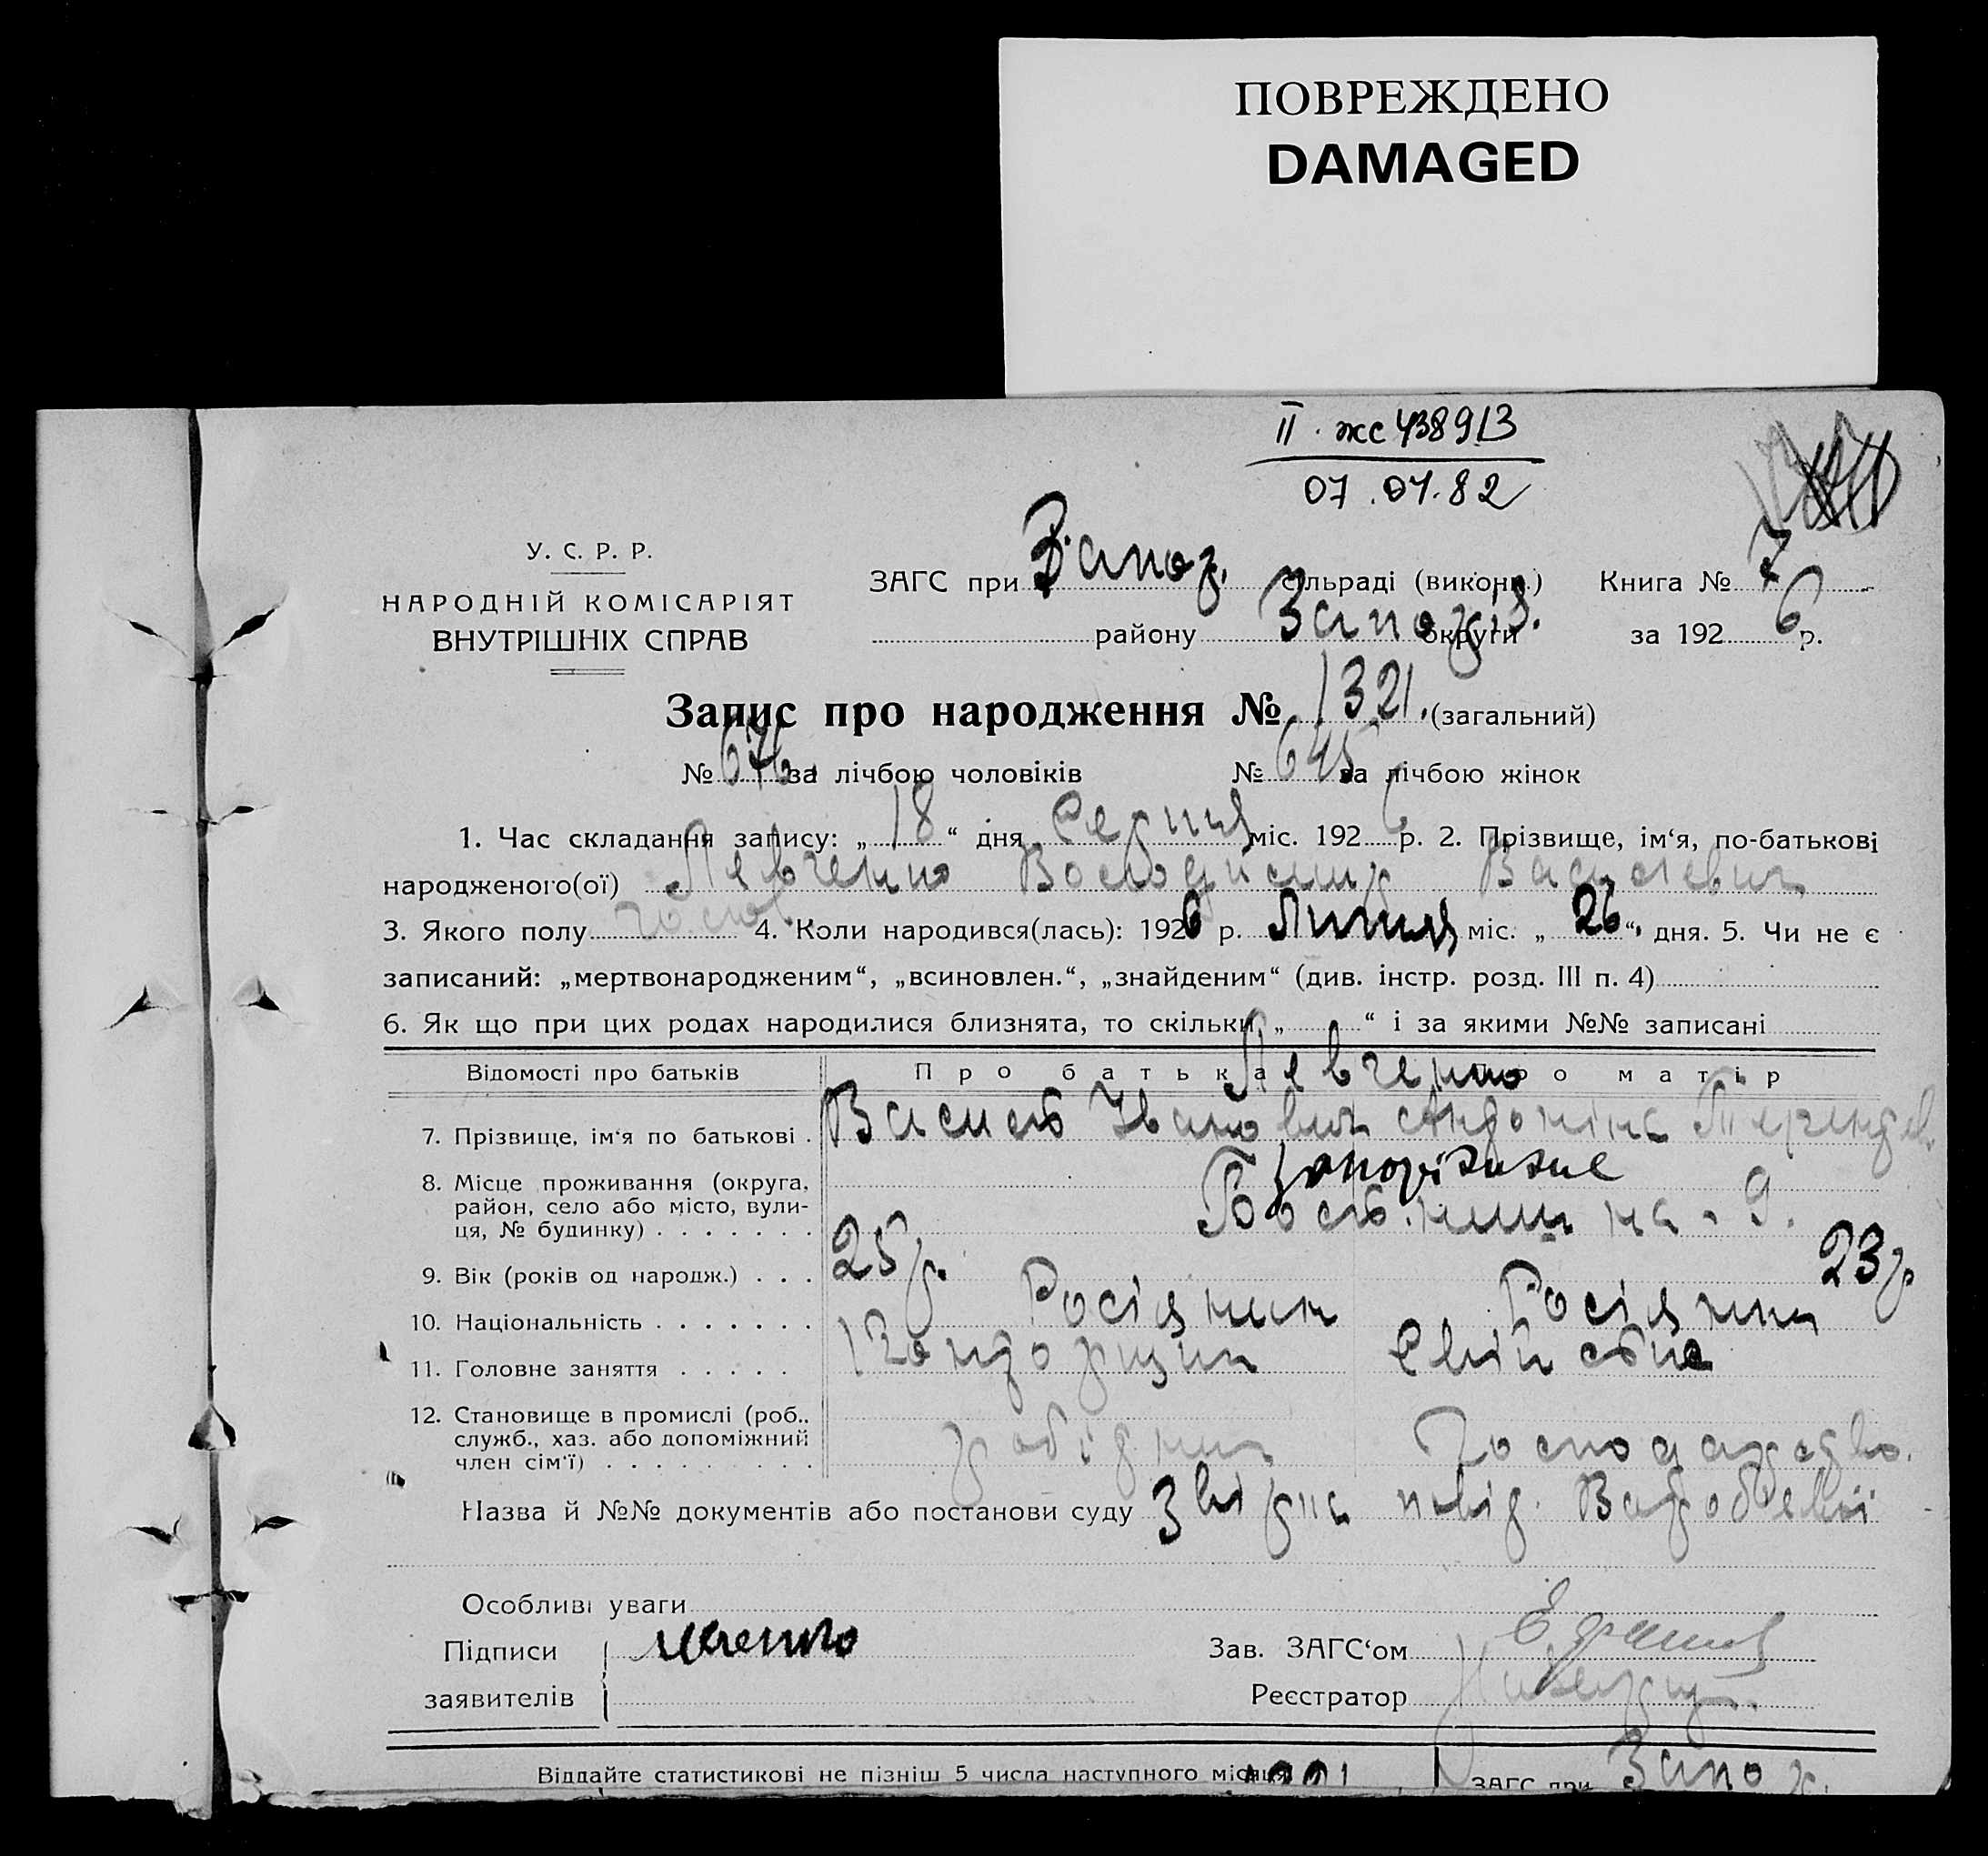 ПОВРЕЖДЕНО
DAMAGED
II. жс 438913
07.07.82
У. С. Р. Р.
НАРОДНІЙ КОМІСАРІЯТ
ВНУТРІШНІХ СПРАВ
ЗАГС при Запор. сільраді (викони.) Книга № 7
району Запоріз. округи за 1926 р.
Запис про народження № 1321. (загальний)
№ 676 за лічбою чоловіків № 645 за лічбою жінок
1. Час складання запису: „18“ дня Серпня міс. 1926 р. 2. Прізвище, ім‘я, по-батькові
народженого(ої) Левченко Володимир Васильевич
3. Якого полу чолов. 4. Коли народився(лась): 1926 р. Липня міс. „26“ дня. 5. Чи не є
записаний: „мертвонародженим“, „всиновлен.“, „знайденим“ (див. інстр. розд. III п. 4)
6. Як що при цих родах народилися близнята, то скільки „ “ і за якими №№ записані
Відомості про батьків Про батька Про матір
Левченко
7. Прізвище, ім‘я по батькові . Василь Іванович Антоніна
8. Місце проживання (округа, Запоріжжє
район, село або місто, вули-
ця, № будинку) . . . . . . . 9.
9. Вік (років од народж.) . . . 25 р. 23 р
10. Національність . . . . . . . Росіянин Росіянка
11. Головне заняття . . . . . Конторщик Свійське
12. Становище в промислі (роб.,
служб., хаз. або допоміжний
член сім‘ї) . . . . . . . . . робітник Господарство.
Назва й №№ документів або постанови суду Звірка посвід.
Особливі уваги
Підписи
Зав. ЗАГС‘ом
заявителів
Реєстратор
Віддайте статистикові не пізніш 5 числа наступного місяця
ЗАГС при Запор.